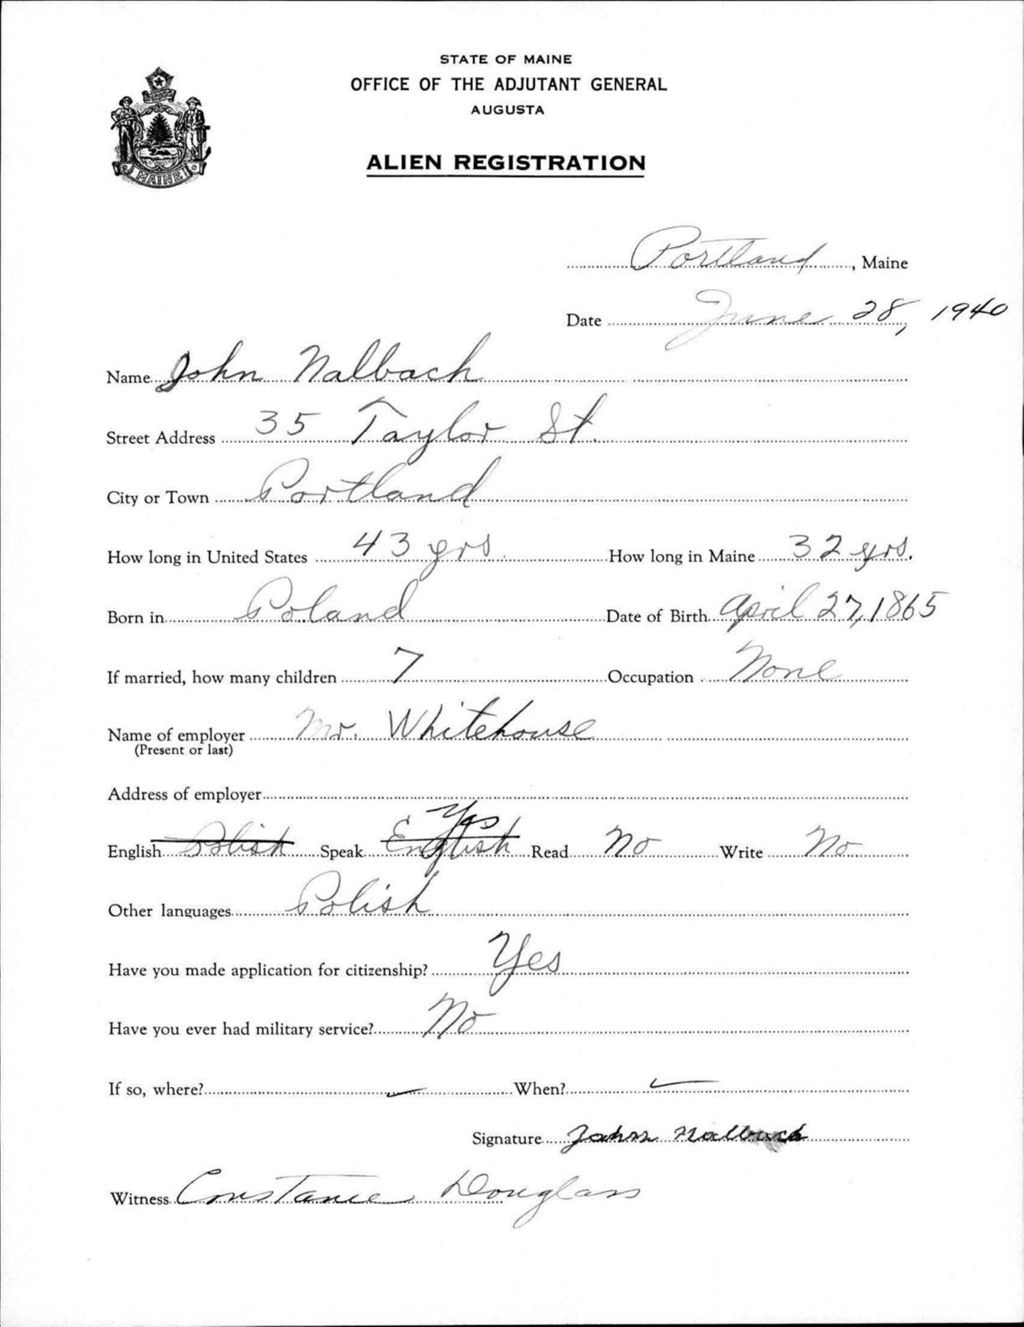 STATE OF MAINE
OFFICE OF THE ADJUTANT GENERAL
AUGUSTA
ALIEN REGISTRATION
MAINE
Portland, Maine
Date June 28, 1940
Name John Nalbach
Street Address 35 Taylor St.
City or Town Portland
How long in United States 43 yrs. How long in Maine 32 yrs.
Born in Poland Date of Birth April 27, 1865
If married, how many children 7 Occupation None
Name of employer Mr. Whitehouse
(Present or last)
Address of employer
Yes
English Polish Speak English Read No Write No
Other languages Polish
Have you made application for citizenship? Yes
Have you ever had military service? No
If so, where? When?
Signature John Nalbach
Witness Constance Douglass